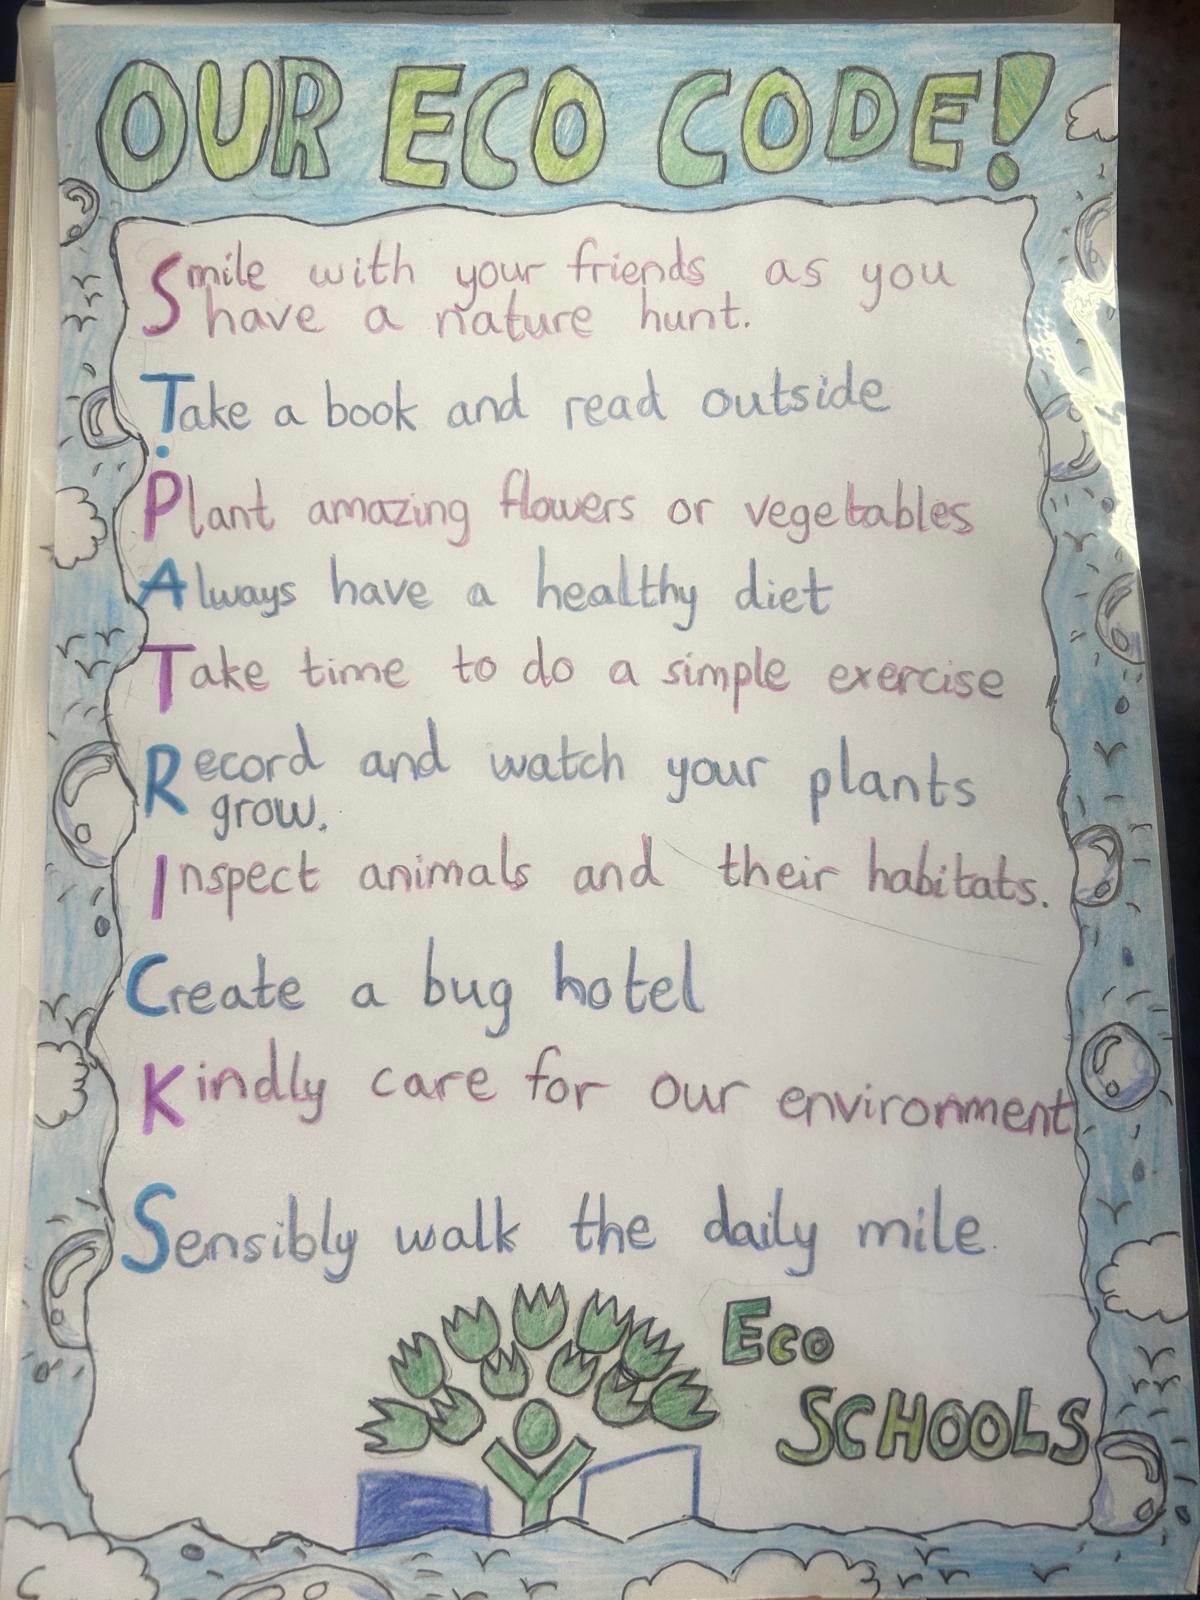 OUR ECO CODE!
Smile with your friends as you
have a nature hunt.
Take a book and read outside
Plant amazing flowers or vegetables
Always have a healthy diet
Take time to do a simple exercise
Record and watch your plants
grow.
Inspect animals and their habitats.
Create a bug hotel
Kindly care for our environment
Sensibly walk the daily mile.
Eco
SCHOOLS